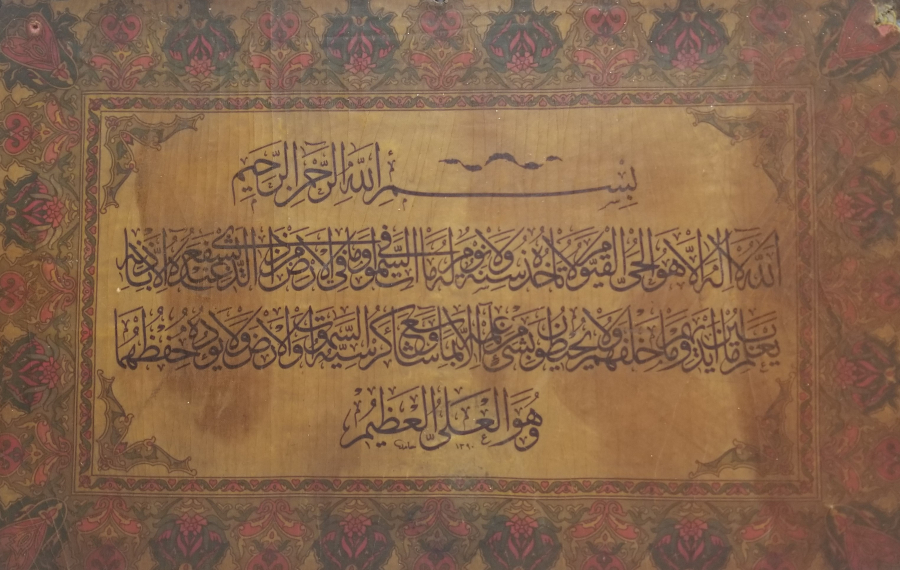 بِسْمِ اللَّهِ الرَّحْمَٰنِ الرَّحِيمِ
اللَّهُ لَا إِلَٰهَ إِلَّا هُوَ الْحَيُّ الْقَيُّومُ لَا تَأْخُذُهُ سِنَةٌ وَلَا نَوْمٌ لَهُ مَا فِي السَّمَاوَاتِ وَمَا فِي الْأَرْضِ مَنْ ذَا الَّذِي يَشْفَعُ عِنْدَهُ إِلَّا بِإِذْنِهِ
يَعْلَمُ مَا بَيْنَ أَيْدِيهِمْ وَمَا خَلْفَهُمْ وَلَا يُحِيطُونَ بِشَيْءٍ مِنْ عِلْمِهِ إِلَّا بِمَا شَاءَ وَسِعَ كُرْسِيُّهُ السَّمَاوَاتِ وَالْأَرْضَ وَلَا يَئُودُهُ حِفْظُهُمَا
وَهُوَ الْعَلِيُّ الْعَظِيمُ
١٣٩٠ حامد